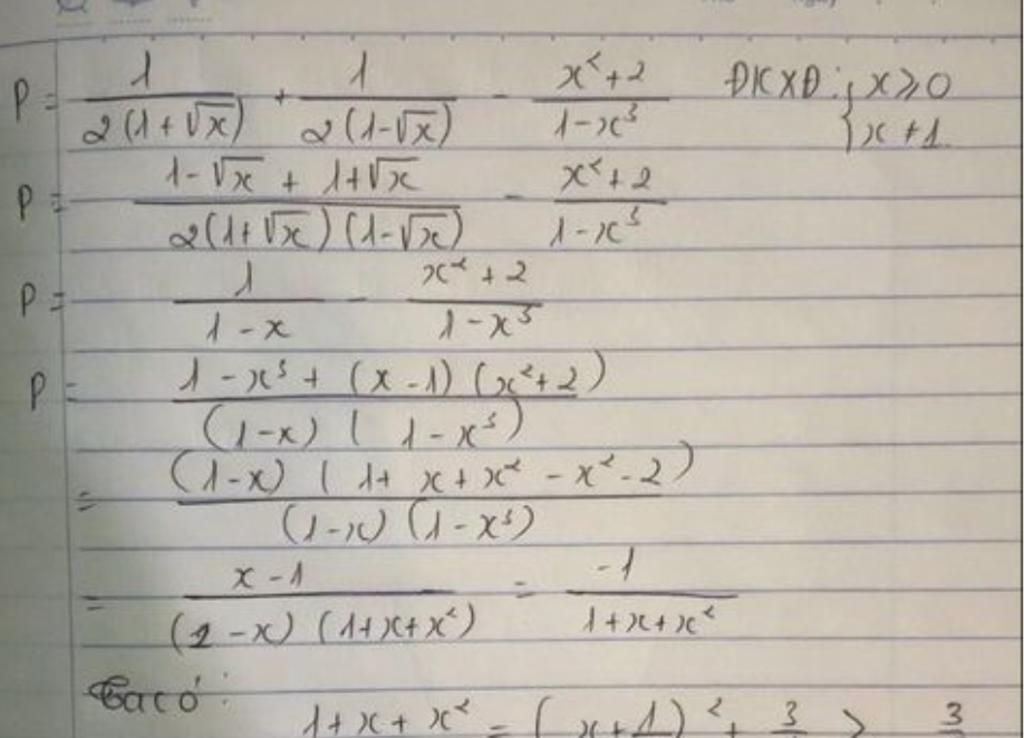 P = 1/(2(1+√x)) + 1/(2(1-√x)) - (x²+2)/(1-x³) ĐKXĐ: { x ⩾ 0
{ x ≠ 1
P = (1-√x + 1+√x)/(2(1+√x)(1-√x)) - (x²+2)/(1-x³)
P = 1/(1-x) - (x²+2)/(1-x³)
P = (1-x³ + (x-1)(x²+2))/((1-x)(1-x³))
= ((1-x)(1+x+x²-x²-2))/((1-x)(1-x³))
= (x-1)/((1-x)(1+x+x²)) = -1/(1+x+x²)
Ta có:
1+x+x² = (x+1)² + 3 > 3